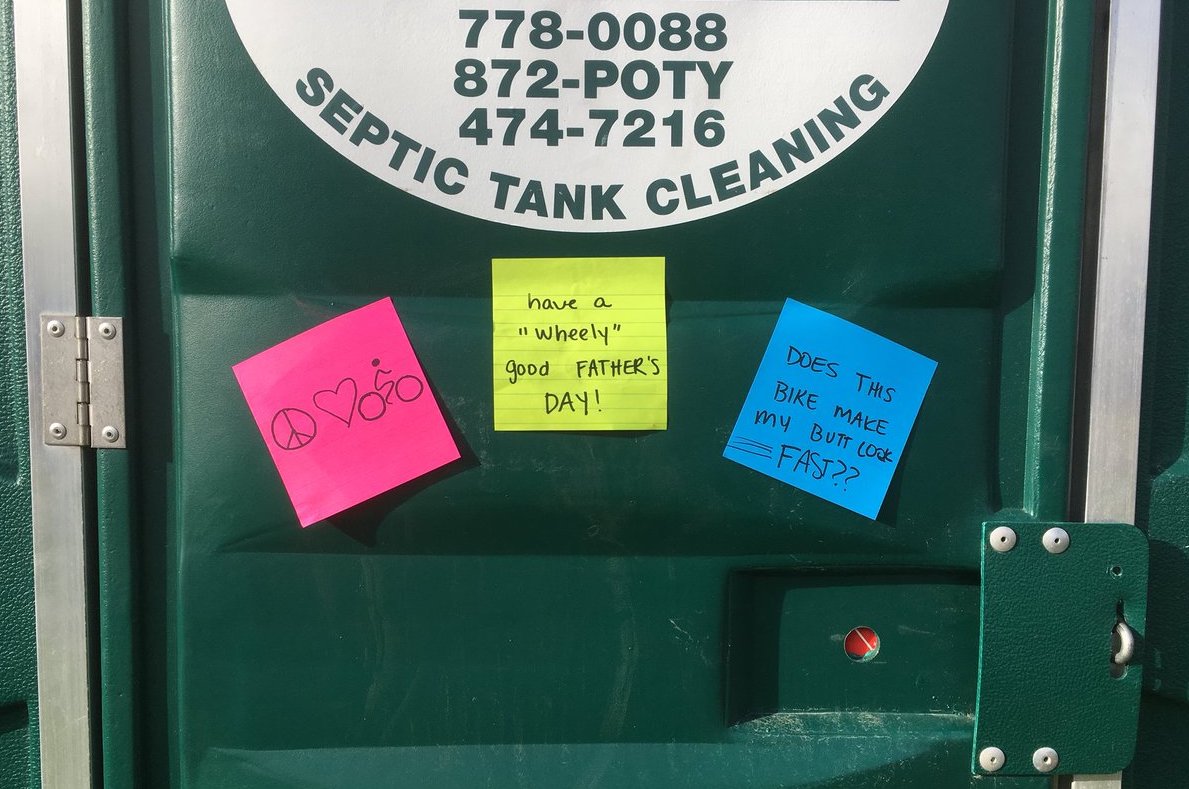 778-0088
872-POTY
474-7216
SEPTIC TANK CLEANING
have a
"wheely"
good FATHER'S
DAY!
DOES THIS
BIKE MAKE
MY BUTT LOOK
FAST??